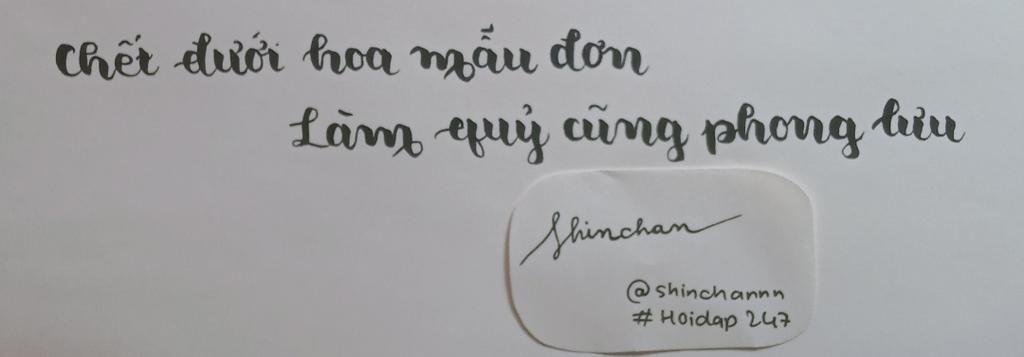 Chết dưới hoa mẫu đơn
Làm quỷ cũng phong lưu
Shinchan
@shinchannn
# Hoidap 247